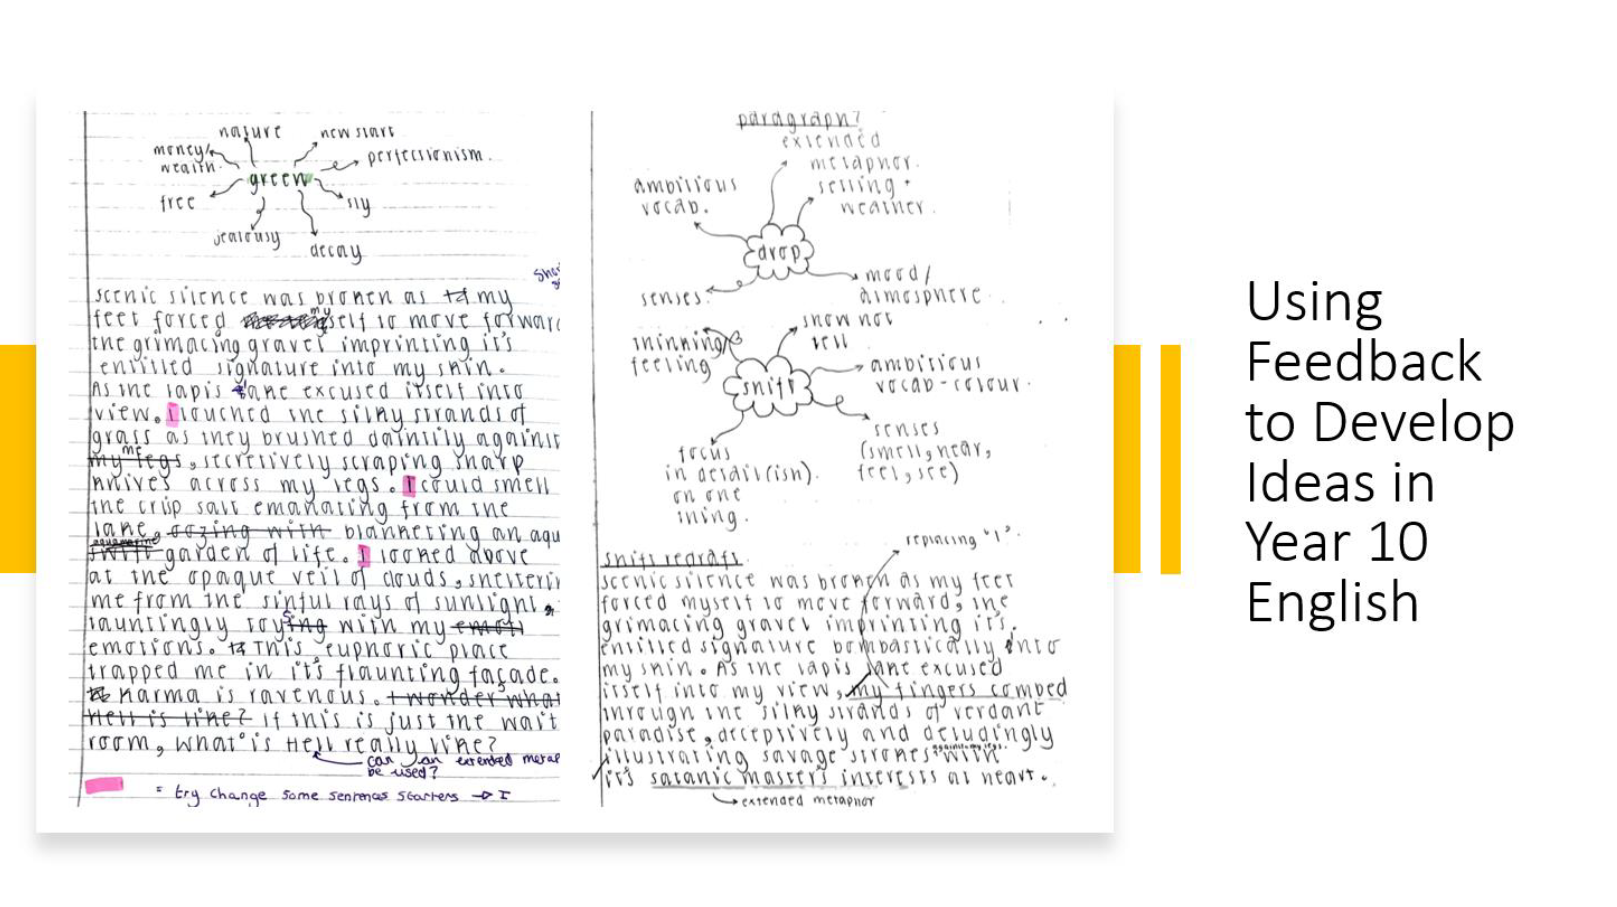 nature
new start
money/
wealth.
perfectionism.
green
free
sly
jealousy
decay
scenic silence was broken as my
feet forced myself to move forward
the grimacing gravel imprinting it's
entitled signature into my skin.
As the lapis lane excused itself into
view. I touched the silky strands of
grass as they brushed daintily against
my legs, secretively scraping sharp
me
knives across my legs. I could smell
the crisp salt emanating from the
lane, oozing with blanketing an aqu
aquamarine
garden of life. I looked above
at the opaque veil of clouds, shelterin
me from the sinful rays of sunlight,
tauntingly toying with my emoti
emotions. This euphoric place
trapped me in it's flaunting façade.
Karma is ravenous. I wonder what
Hell is like? If this is just the wait
room, what is Hell really like?
can an extended metap
be used?
= try change some sentences starters → I
paragraph?
extended
metaphor.
ambitious
vocab.
setting +
weather.
drop
senses.
mood/
atmosphere.
thinking/
feeling
show not
tell
ambitious
vocab-colour.
shift
senses
(smell, hear,
feel, see)
focus
in detail(ish).
on one
thing.
replacing "I".
shift redraft.
scenic silence was broken as my feet
forced myself to move forward, the
grimacing gravel imprinting it's
entitled signature bombastically into
my skin. As the lapis lane excused
itself into my view, my fingers combed
through the silky strands of verdant
paradise, deceptively and deludingly
illustrating savage strokes with
against my legs.
it's satanic master's interests at heart.
extended metaphor
Using
Feedback
to Develop
Ideas in
Year 10
English